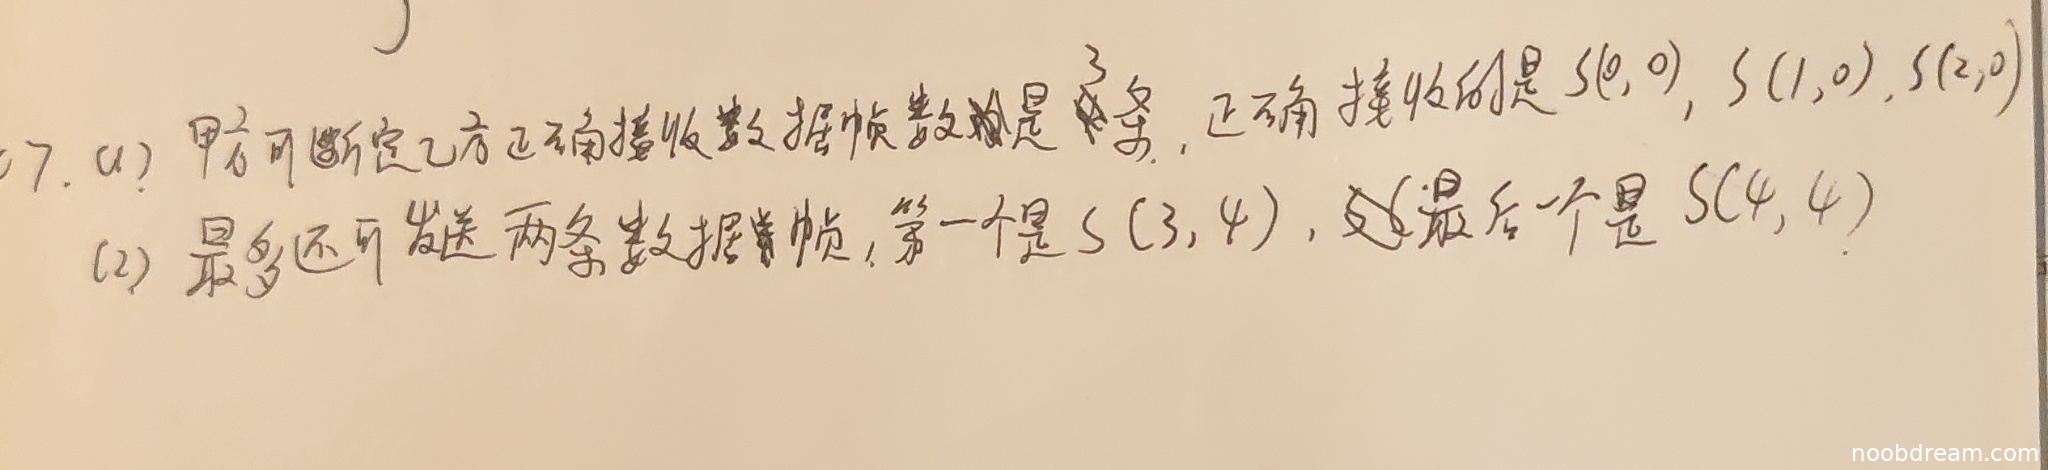 7. (1) 甲方可断定乙方正确接收数据帧数是3条, 正确接收的是 S(0,0), S(1,0), S(2,0)
(2) 最多还可发送两条数据帧, 第一个是 S(3,4), 最后一个是 S(4,4).
noobdream.com